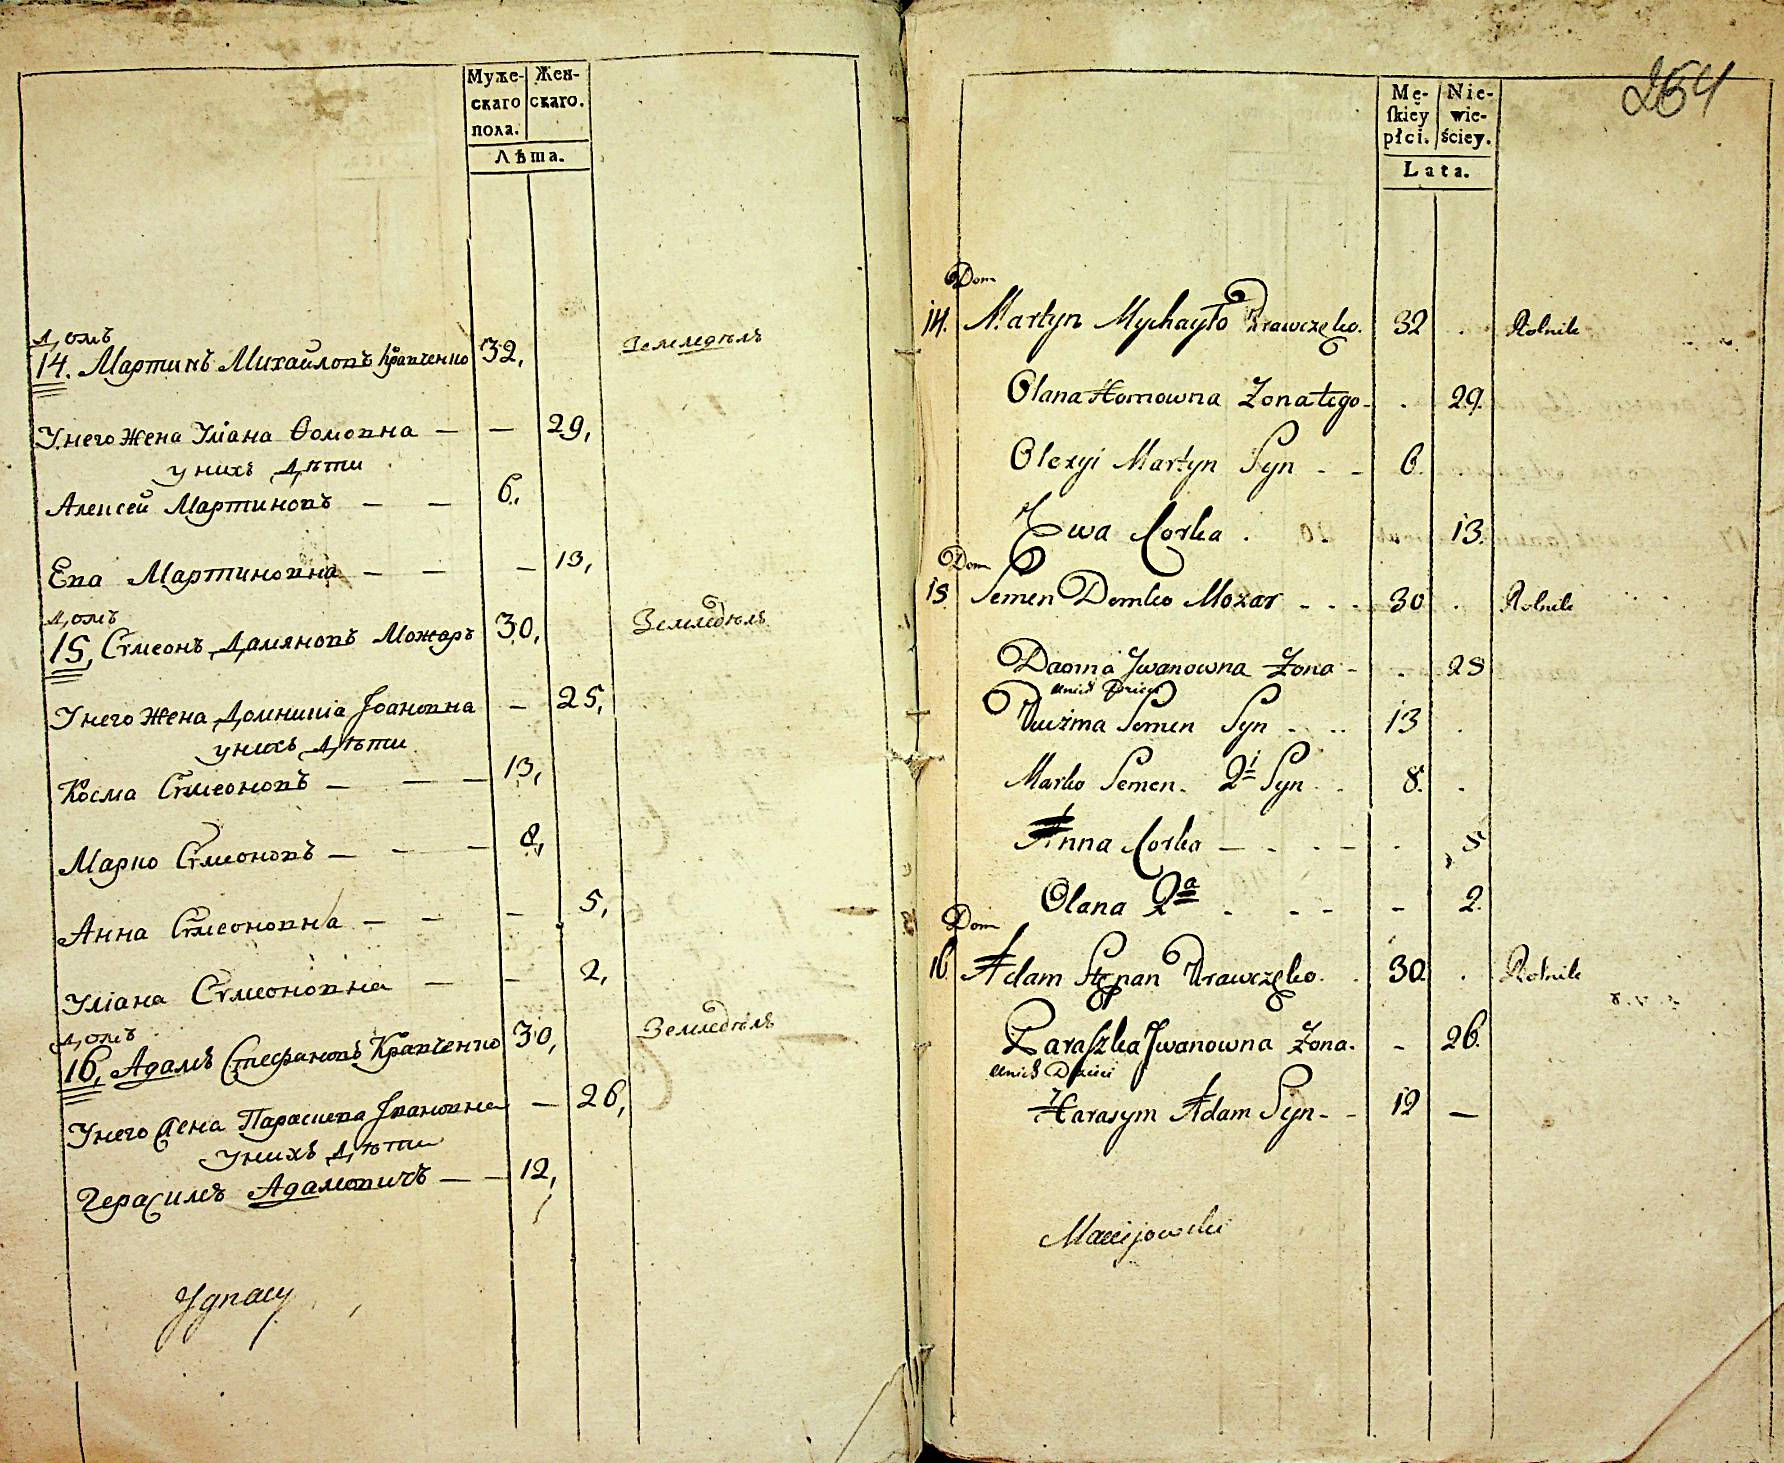 Муже- Жен-
скаго скаго.
пола.
Лѣта.
домъ
14. Мартинъ Михайловъ Кравченко 32, Земледѣлъ
У него жена Уліана Ѳомовна — — 29,
у нихъ дѣти
Алексей Мартиновъ — — 6,
Ева Мартиновна — — — 13,
домъ
15, Сѵмеонъ Дамяновъ Можаръ 30, Земледѣлъ
У него жена Домникіа Іоановна — 25,
у нихъ дѣти
Косма Сѵмеоновъ — — — 13,
Марко Сѵмеоновъ — — — 8,
Анна Сѵмеоновна — — — 5,
Уліана Сѵмеоновна — — 2,
домъ
16, Адамъ Стефановъ Кравченко 30, Земледѣлъ
У него жена Параскева Івановна — 26,
У нихъ дѣти
Герасимъ Адамовичъ — — 12,
Ygnacy
264
Mę- Nie-
skiey wie-
płci. ściey.
Lata.
Dom
14. Martyn Mychayło Krawczęko. 32 . Rolnik
Olana Homowna Żona tego - . 29.
Olexyi Martyn Syn - - 6.
Ewa Corka . 13.
Dom
15 Semen Demko Mozar - - - 30 . Rolnik
Daomia Jwanowna Żona - - 25
unich Dzieci
Kuźma Semen Syn - - - 13 .
Marko Semen. 2i Syn . . 8. .
Anna Corka — - - — . 5
Olana 2a . - - - 2.
Dom
16 Adam Stepan Krawczęko. . 30. . Rolnik
Paraszka Jwanowna Żona. - 26.
unich Dzieci
Harasym Adam Syn - - 12 —
Maciejowski